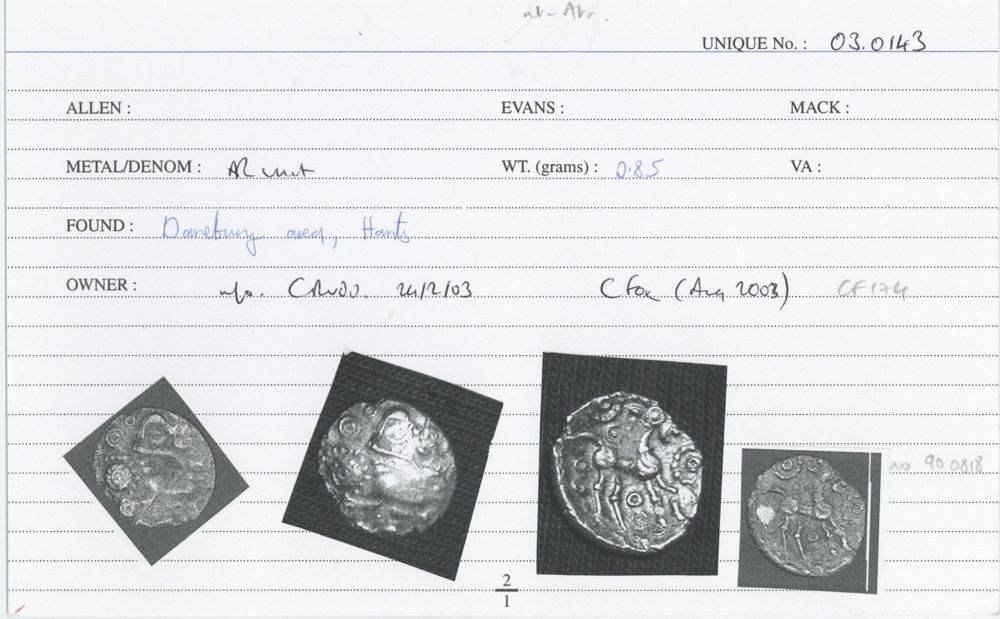 UNIQUE No. : 03.0143
ALLEN : EVANS : MACK :
METAL/DENOM : AR unit WT. (grams) : 0.85 VA :
FOUND : Danebury area, Hants
OWNER : C Rudd. 24/2/03 C Fox (Aug 2003) CF174
no 90.0818
2
1